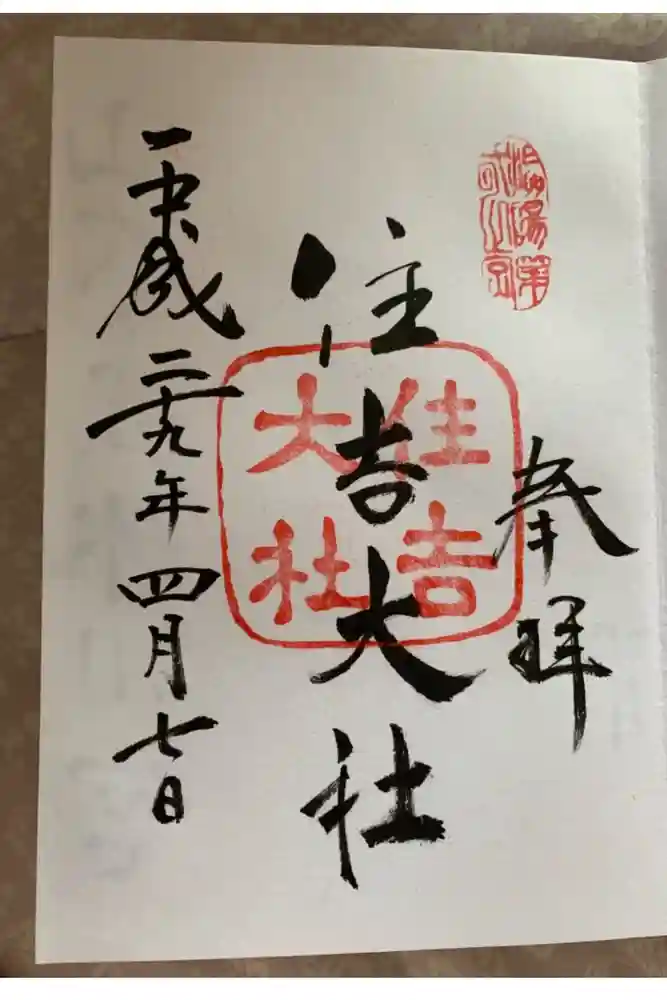 奉拝
住吉大社
住吉
大社
平成二十九年四月七日